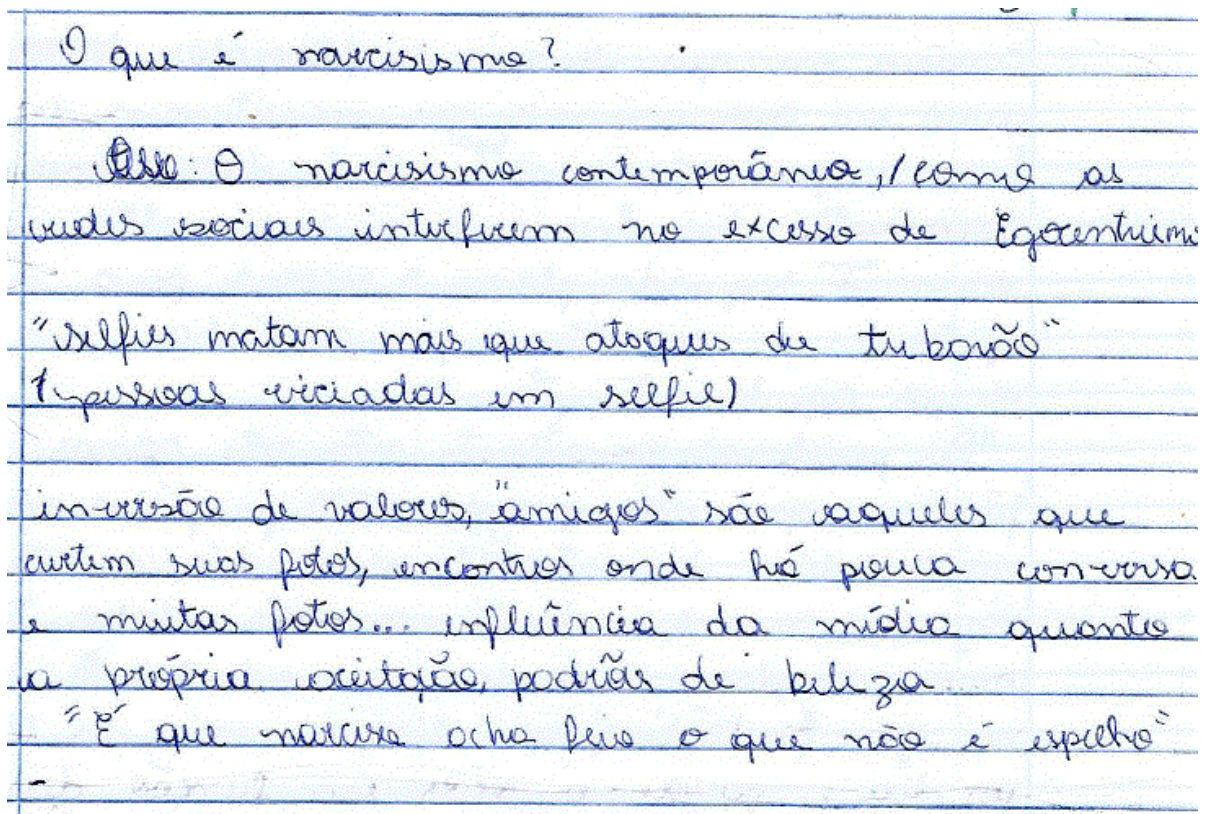 O que é narcisismo?
O narcisismo contemporâneo, / como as
redes sociais interferem no excesso de Egocentrismo
"selfies matam mais que ataques de tubarão"
(pessoas viciadas em selfie)
inversão de valores, "amigos" são aqueles que
curtem suas fotos, encontros onde há pouca conversa
e muitas fotos... influência da mídia quanto
a própria aceitação, padrões de beleza...
"É que narciso acha feio o que não é espelho"